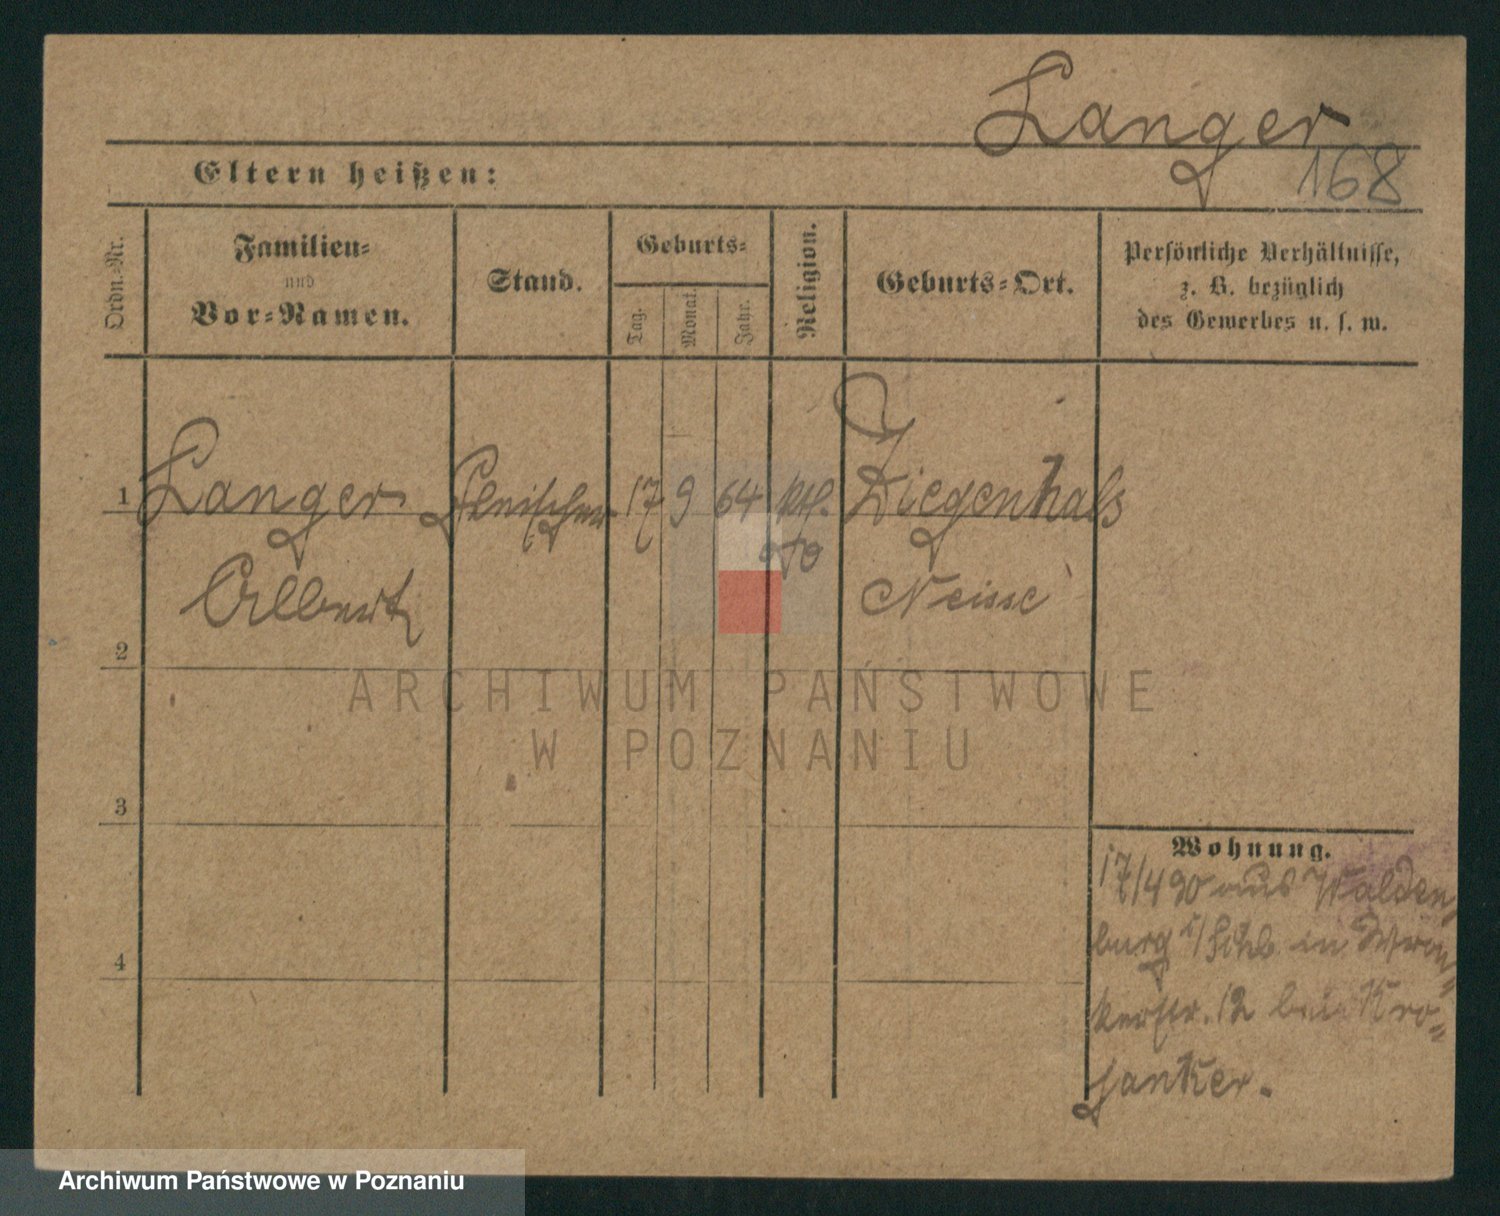 Langer
168
Eltern heißen:
Ordn.-Nr.
Familien-
und
Vor-Namen.
Stand.
Geburts-
Tag.
Monat.
Jahr.
Religion.
Geburts-Ort.
Persönliche Verhältnisse,
z. B. bezüglich
des Gewerbes u. s. w.
1 Langer Fleischer 17 9 64 kth. Ziegenhals
Albert Neisse
2
3
4
Wohnung.
17/4 90 aus Walden
burg i/Schls. in
kerstr. 12 bei Kro-
janker.
ARCHIWUM PAŃSTWOWE
W POZNANIU
Archiwum Państwowe w Poznaniu